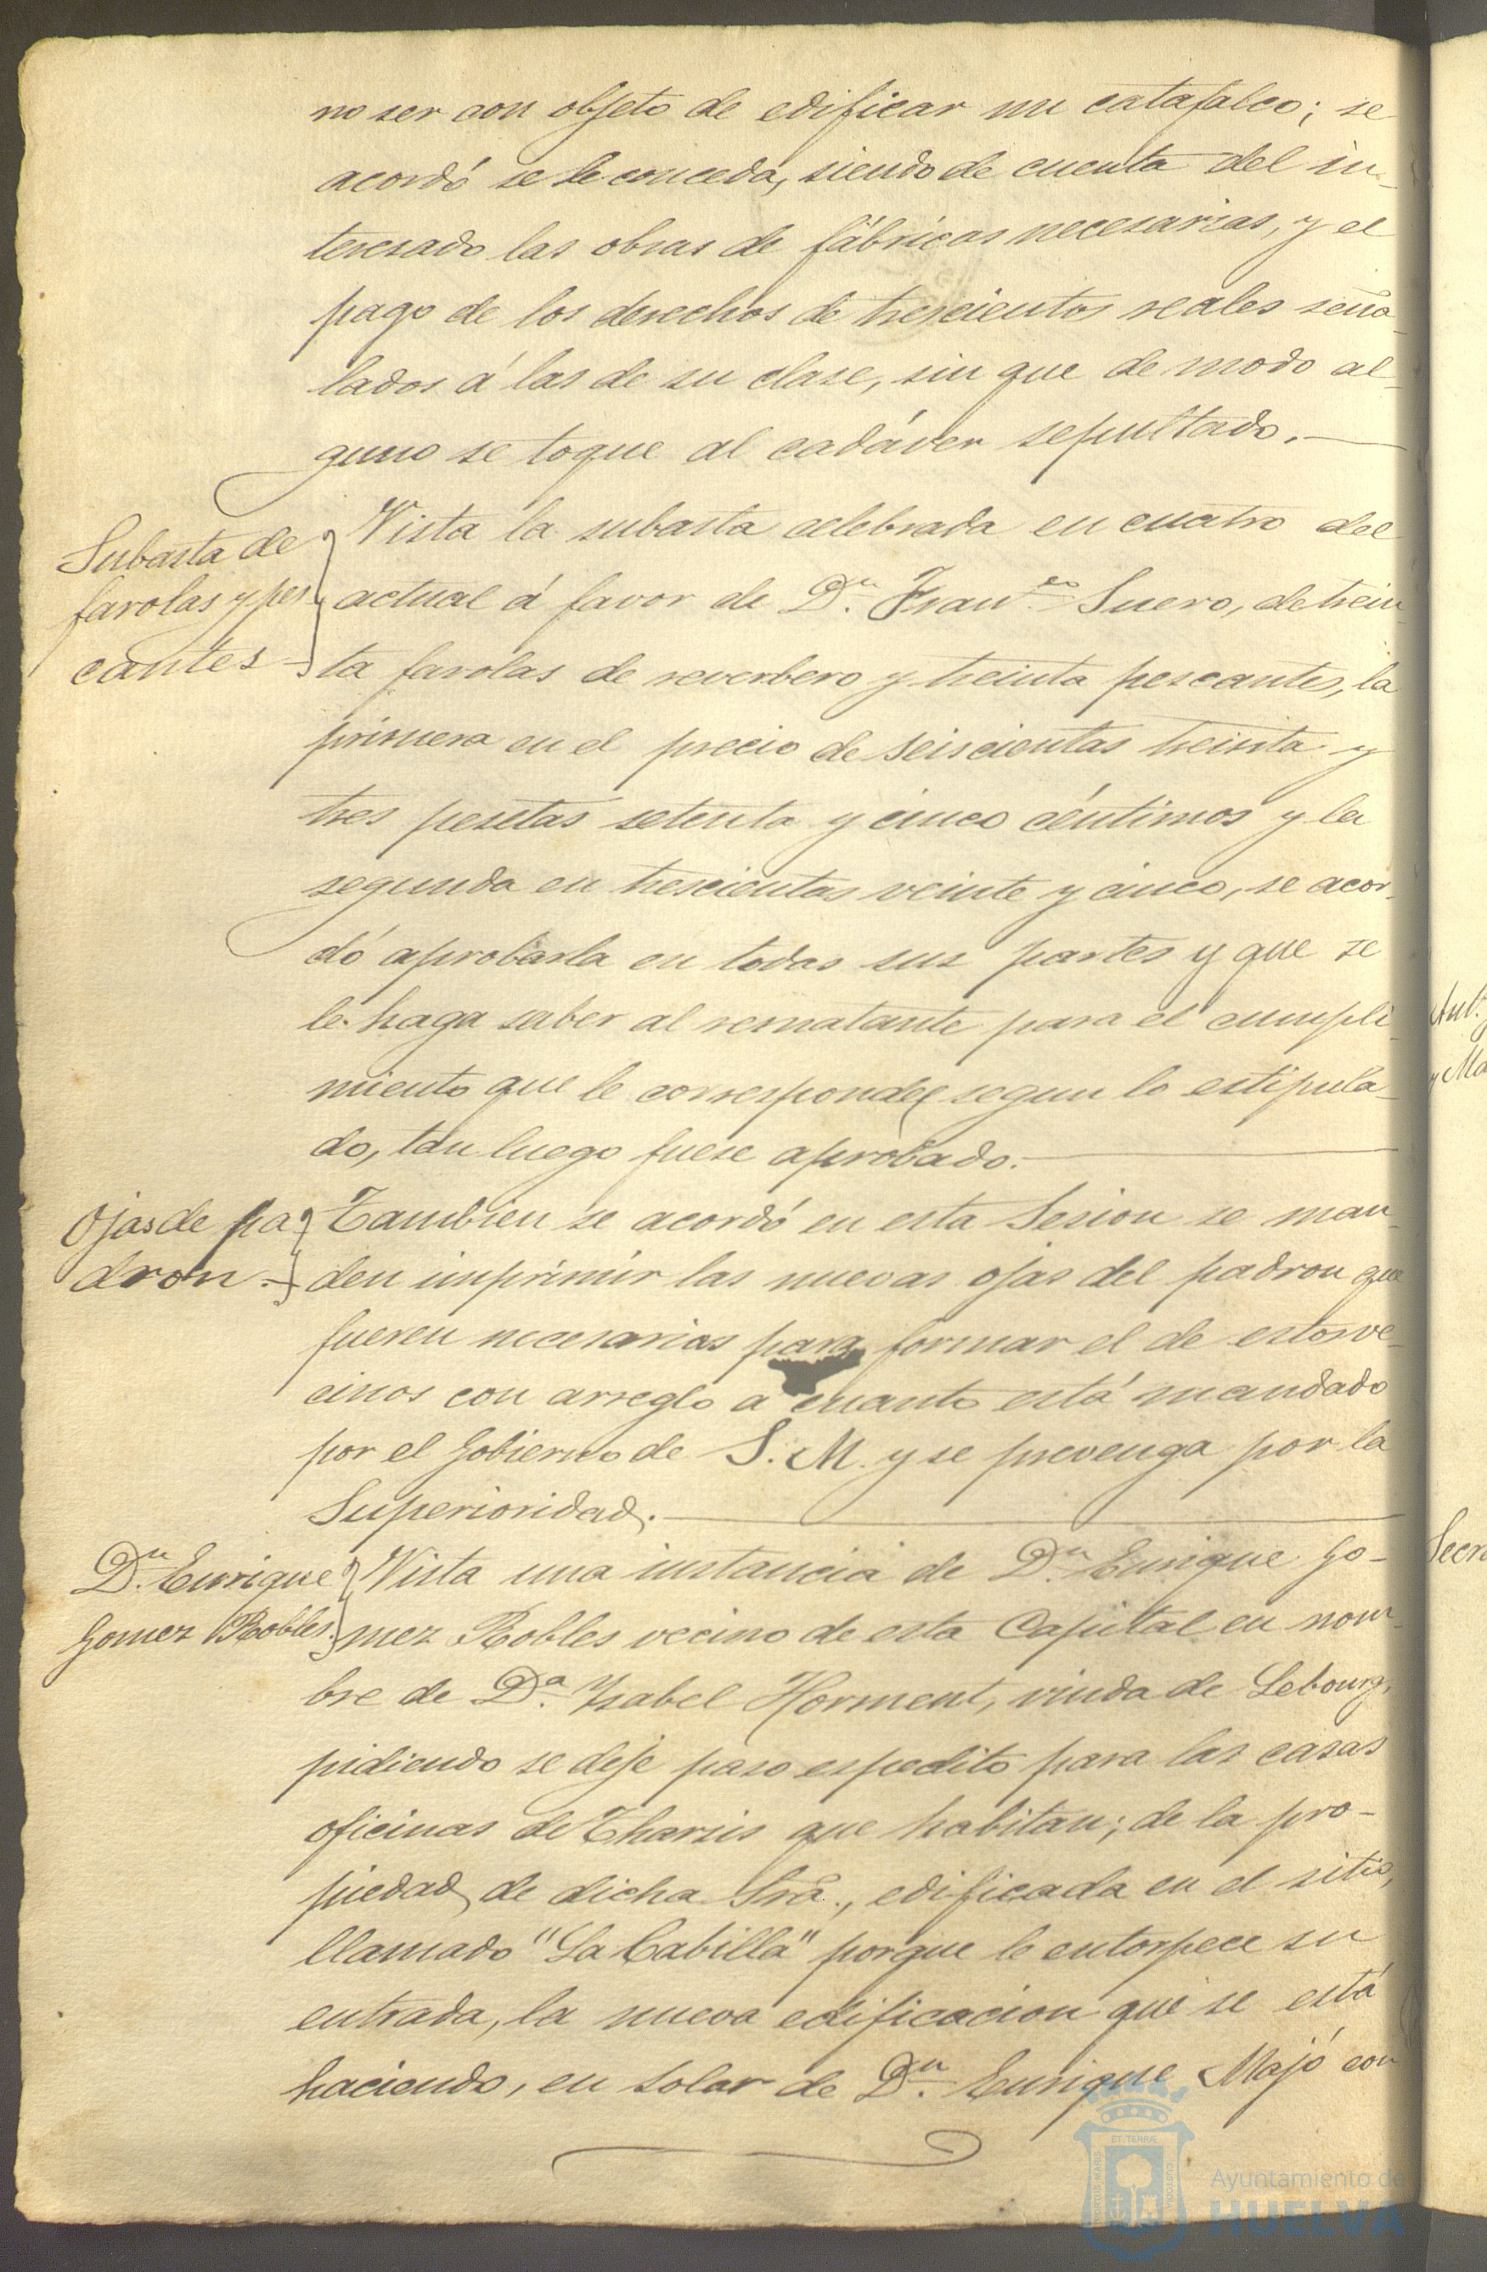 no ser con objeto de edificar un catafalco; se
acordó se le conceda, siendo de cuenta del in-
teresado las obras de fábricas necesarias, y el
pago de los derechos de trescientos reales seña-
lados á las de su clase, sin que de modo al-
guno se toque al cadáver sepultado.
Subasta de
farolas y pes-
cantes
Vista la subasta celebrada en cuatro del
actual á favor de Dn. Franco. Suero, de trein-
ta farolas de reverbero y treinta pescantes, la
primera en el precio de seiscientas treinta y
tres pesetas setenta y cinco céntimos y la
segunda en trescientas veinte y cinco, se acor-
dó aprobarla en todas sus partes y que se
le haga saber al rematante para el cumpli-
miento que le corresponde segun lo estipula-
do, tan luego fuese aprobado.
Ojas de pa-
dron.
Tambien se acordó en esta Sesion se man-
den imprimir las nuevas ojas del padron que
fueren necesarias para formar el de estos ve-
cinos con arreglo a cuanto está mandado
por el Gobierno de S. M. y se prevenga por la
Superioridad.
Dn. Enrique
Gomez Robles.
Vista una instancia de Dn. Enrique Go-
mez Robles vecino de esta Capital en nom-
bre de Da. Ysabel Horment, viuda de Lebourg,
pidiendo se deje paso espedito para las casas
oficinas de Tharsis que habitan; de la pro-
piedad de dicha Sra., edificada en el sitio,
llamado "La Cabilla" porque le entorpece su
entrada, la nueva edificacion que se está
haciendo, en solar de Dn. Enrique Majó con
Ayuntamiento de
HUELVA